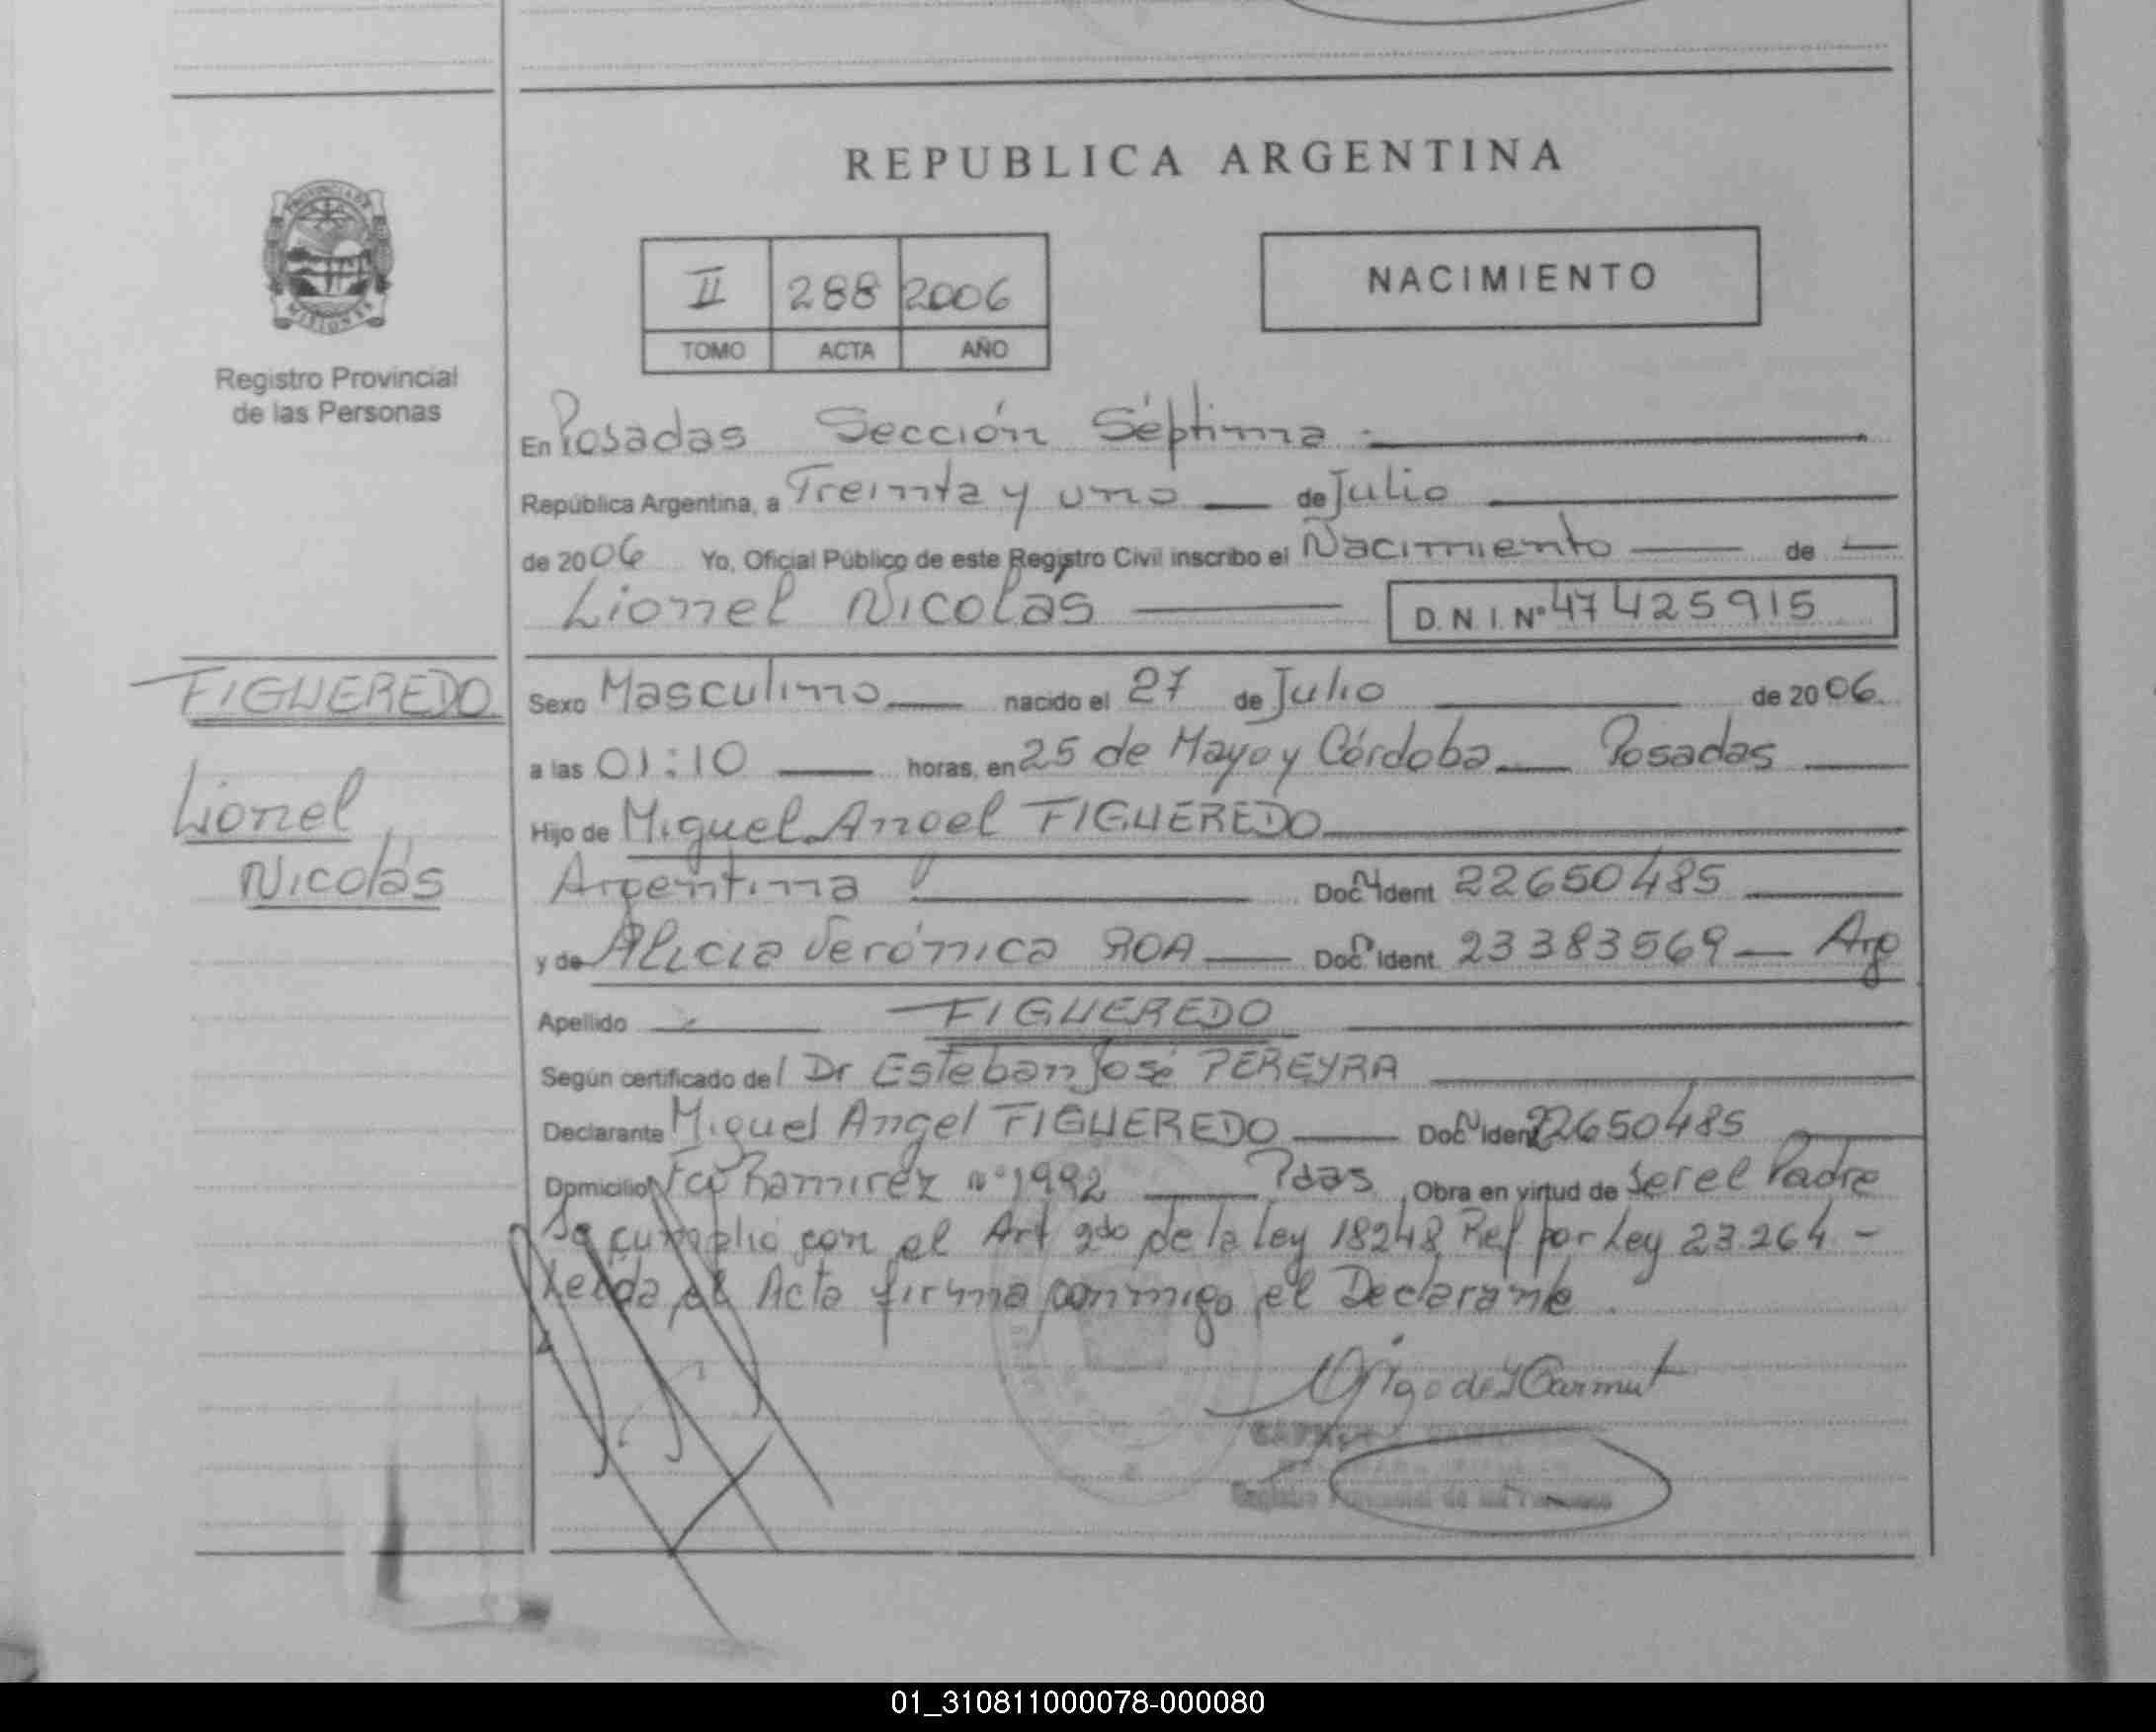 REPUBLICA ARGENTINA
PROVINCIA DE
MISIONES
Registro Provincial
de las Personas
II 288 2006
TOMO ACTA AÑO
NACIMIENTO
En Posadas Sección Séptima
República Argentina, a Treinta y uno de Julio
de 2006 Yo, Oficial Público de este Registro Civil inscribo el Nacimiento de
Lionel Nicolás D.N.I. Nº 47425915
FIGUEREDO
Lionel
Nicolás
Sexo Masculino nacido el 27 de Julio de 2006
a las 01:10 horas, en 25 de Mayo y Córdoba Posadas
Hijo de Miguel Angel FIGUEREDO
Argentina Doc Ident. 22650485
y de Alicia Verónica ROA Doc Ident. 23383569 Arg
Apellido FIGUEREDO
Según certificado del Dr Esteban José PEREYRA
Declarante Miguel Angel FIGUEREDO Doc Ident 22650485
Domicilio Fco Ramirez nº 1992 Pdas Obra en virtud de Ser el Padre
Se cumplió con el Art 2do de la Ley 18248 Ref por Ley 23264 -
Leida el Acta firma conmigo el Declarante.
Registro Provincial de las Personas
01_310811000078-000080